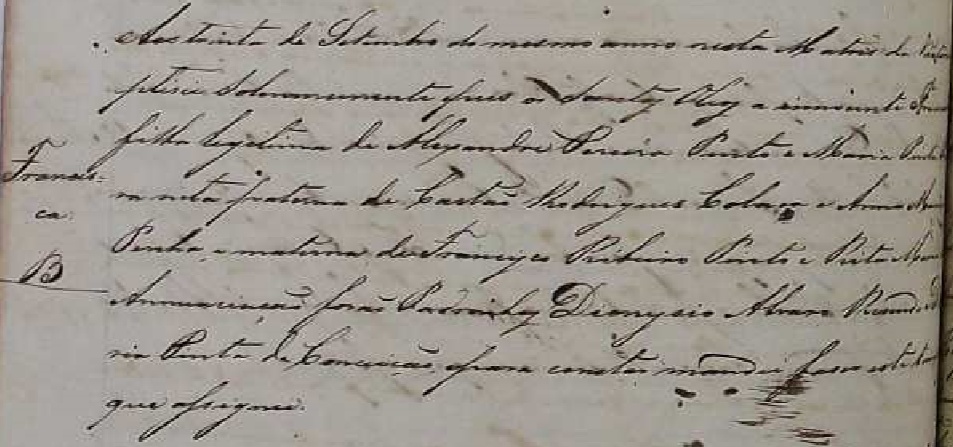 Francis-
ca
B
Aos trinta de Setembro do mesmo anno nesta Matris de
ptisei solemnemente e pus os Santos Oleos a innocente
filha legitima de Alexandre Pereira Pinto e Maria
ra neta paterna de Rodrigues Colaço e Anna
Penha, e materna de Francisco Ribeiro Pinto e Rita
Annunciação forão Padrinhos Dionysio Alvares
ria Pinta da Conceição, e para constar mandei faser este
que assignei.